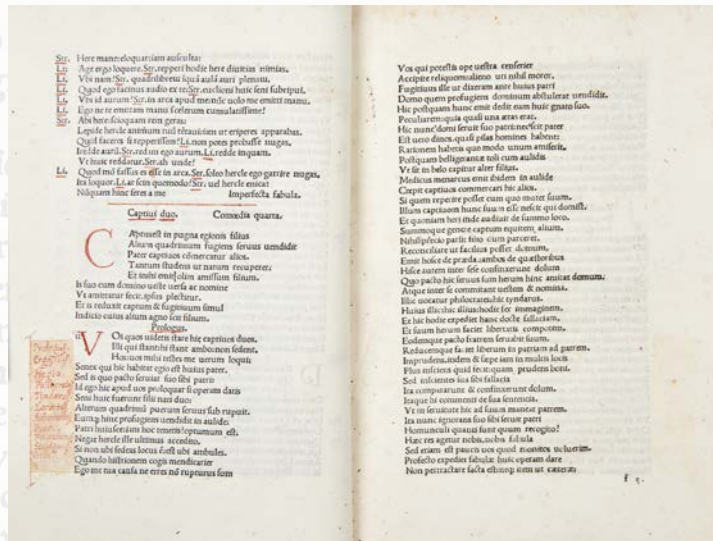 Str. Here mane: eloquar iam ausculta:
Li. Age ergo loquere. Str. repperi hodie here diuitias nimias.
Li. Vbi nam? Str. quadrilibrem iquã aulã auri plenam.
Li. Quod ego facinus audio ex te: Str. euclioni huic seni subripui.
Li. Vbi id aurum? Str. in arca apud me: nũc uolo me emitti manu.
Li. Ego ne te emittam manu scelerum cumulatissime?
Str. Abi here: scio quam rem geras:
Lepide hercle animum tuũ tẽtaui: iam ut eriperes apparabas.
Quid faceres si repperissem? Li. non potes probasse nugas.
I redde aurũ. Str. reddã ego aurum. Li. redde inquam.
Vt huic reddatur. Str. ah unde?
Li. Quod mõ fassus es esse in arca. Str. soleo hercle ego garrire nugas.
Ita loquor. Li. at scin quomodo? Str. uel hercle enicat
Nũquam hinc feres a me Imperfecta fabula.
Captiui duo. Comœdia quarta.
CAptus est in pugna egionis filius
Alium quadrimum fugiens seruus uendidit
Pater captiuos cõmercatur alios.
Tantum studens ut natum recuperet:
Et inibi emit olim amissum filium.
Is suo cum domino ueste uersa ac nomine
Vt amittatur fecit. ipsus plectitur.
Et is reduxit captum & fugitiuum simul
Indicio cuius alium agno scit filium.
Prologus.
VOs quos uidetis stare hic captiuos duos.
Illi qui stant: hi stant ambo: non sedent.
Hos uos mihi testes me uerum loqui:
Senex qui hic habitat egio est huius pater.
Sed is quo pacto seruiat suo sibi patri
Id ego hic apud uos proloquar si operam datis
Seni huic fuerunt filii nati duo:
Alterum quadrimũ puerum seruus sub rupuit.
Eumq; hinc profugiens uendidit in aulide:
Patri huiusce: iam hoc tenetis? optumum est.
Negat hercle ille ultimus accedito.
Si non ubi sedeas locus ẽ: est ubi ambules.
Quando histrionem cogis mendicarier
Ego me tua causa ne erres nõ rupturus sum
Vos qui potestis ope uestra censerier
Accipite reliquom: alieno uti nihil moror.
Fugitiuus ille ut dixeram ante huius patri
Domo quem profugiens dominum abstulerat uendidit.
Hic postquam hunc emit dedit eum huic gnato suo.
Peculiarem: quia quasi una ætas erat.
Hic nunc domi seruit suo patri: nec scit pater
Est uero dinos. quasi pilas homines habent:
Rationem habetis quo modo unum amiserit.
Postquam belligerant ætoli cum aulidis
Vt fit in bello capitur alter filius.
Medicus menarcus emit ibidem in aulide
Crepit captiuos commercari hic alios.
Si quem reperire posset cum quo mutet suum.
Illum captiuom hunc suum esse nescit qui domist.
Et quoniam heri inde audiuit de summo loco.
Summoque genere captum equitem alium.
Nihil spræcio parsit filio cum parceret.
Reconciliare ut facilius posset domum.
Emit hosce de præda: ambos de quæstoribus
Hisce autem inter sese confinxerunt dolum
Quo pacto hic seruus suum herum hinc amittat domum.
Atque inter se commitant uestem & nomina.
Illic uocatur philocrates: hic tyndarus.
Huius illic: hic illius: hodie fer immaginem.
Et hic hodie expediet hanc docte fallaciam.
Et suum herum faciet libertatis compotem.
Eodemque pacto fratrem seruabit suum.
Reducemque faciet liberum in patriam ad patrem.
Imprudens: itidem & sæpe iam in multis locis
Plus insciens quid fecit: quam prudens boni.
Sed inscientes sua sibi fallacia
Ita compararunt & confinxerunt dolum.
Itaque hi commenti de sua sententia.
Vt in seruitute hic ad suum maneat patrem.
Ita nunc ignorans suo sibi seruit patri
Homunculi quanti sunt quum recogito?
Hæc res agetur nobis. uobis fabula
Sed etiam est paucis uos quod monitos uoluerim.
Profecto expediet fabulæ huic operam dare
Non pertractate facta est: neq; item ut cæteræ: